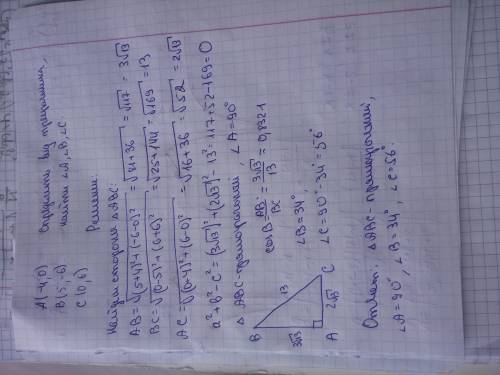 A(-4;0) Определить вид треугольника,
B(5;-6) найти ∠A, ∠B, ∠C
C(0;6) Решение:
Найдём стороны △ABC:
AB = √(5+4)² + (-6-0)² = √81+36 = √117 = 3√13
BC = √(0-5)² + (6+6)² = √25+144 = √169 = 13
AC = √(0-4)² + (6-0)² = √16+36 = √52 = 2√13
a² + b² - c² = (3√13)² + (2√13)² - 13² = 117 + 52 - 169 = 0
△ABC-прямоугольный, ∠A = 90°
cos B = AB/BC = 3√13/13 = 0,8321
∠B = 34°,
∠C = 90° - 34° = 56°
B
C
A
13
3√13
2√13
Ответ: △ABC - прямоугольный,
∠A = 90°, ∠B = 34°, ∠C = 56°.